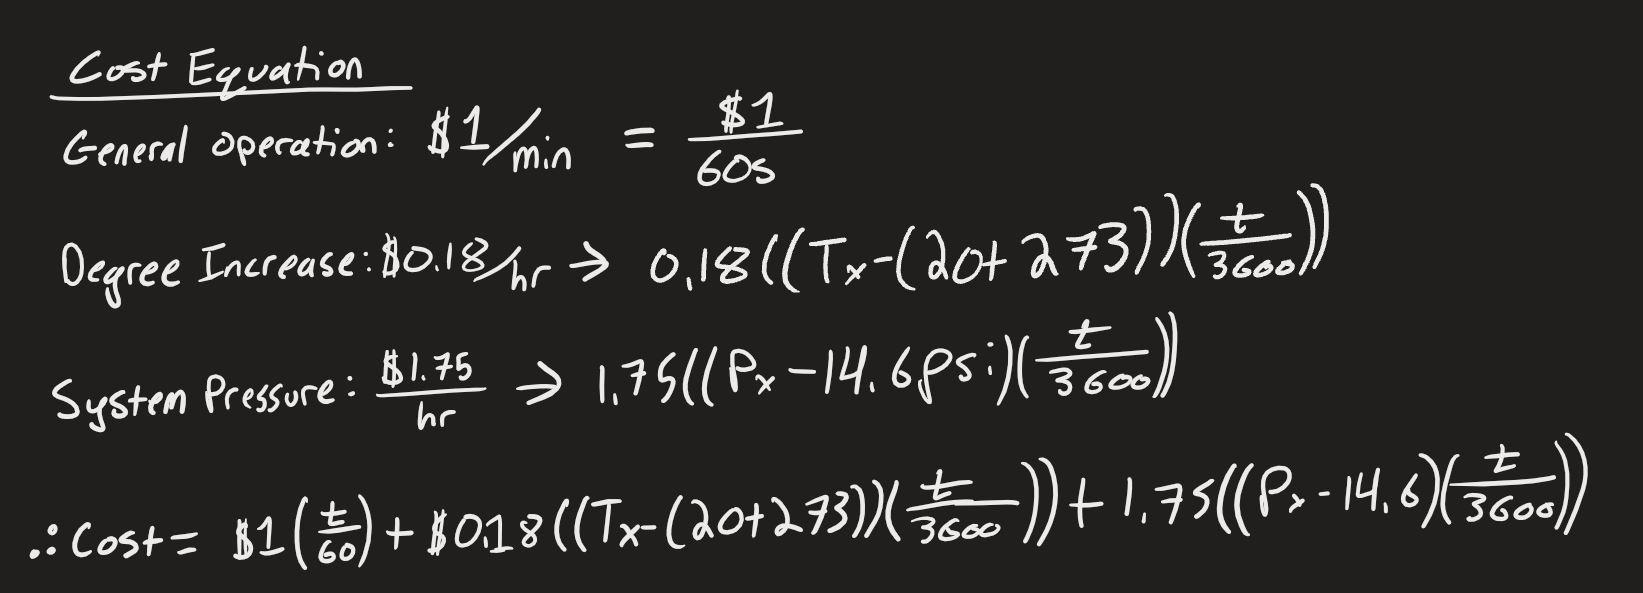 Cost Equation
General operation: $1/min = $1/60s
Degree Increase: $0.18/hr → 0.18((Tx-(20+273))(t/3600))
System Pressure: $1.75/hr → 1.75((Px-14.6psi)(t/3600))
∴ Cost = $1(t/60) + $0.18((Tx-(20+273))(t/3600)) + 1.75((Px-14.6)(t/3600))